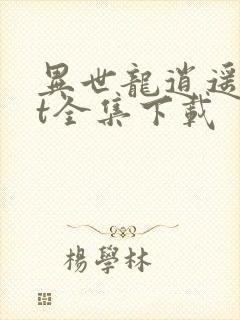 異世龍逍遥
t全集下載
楊學林